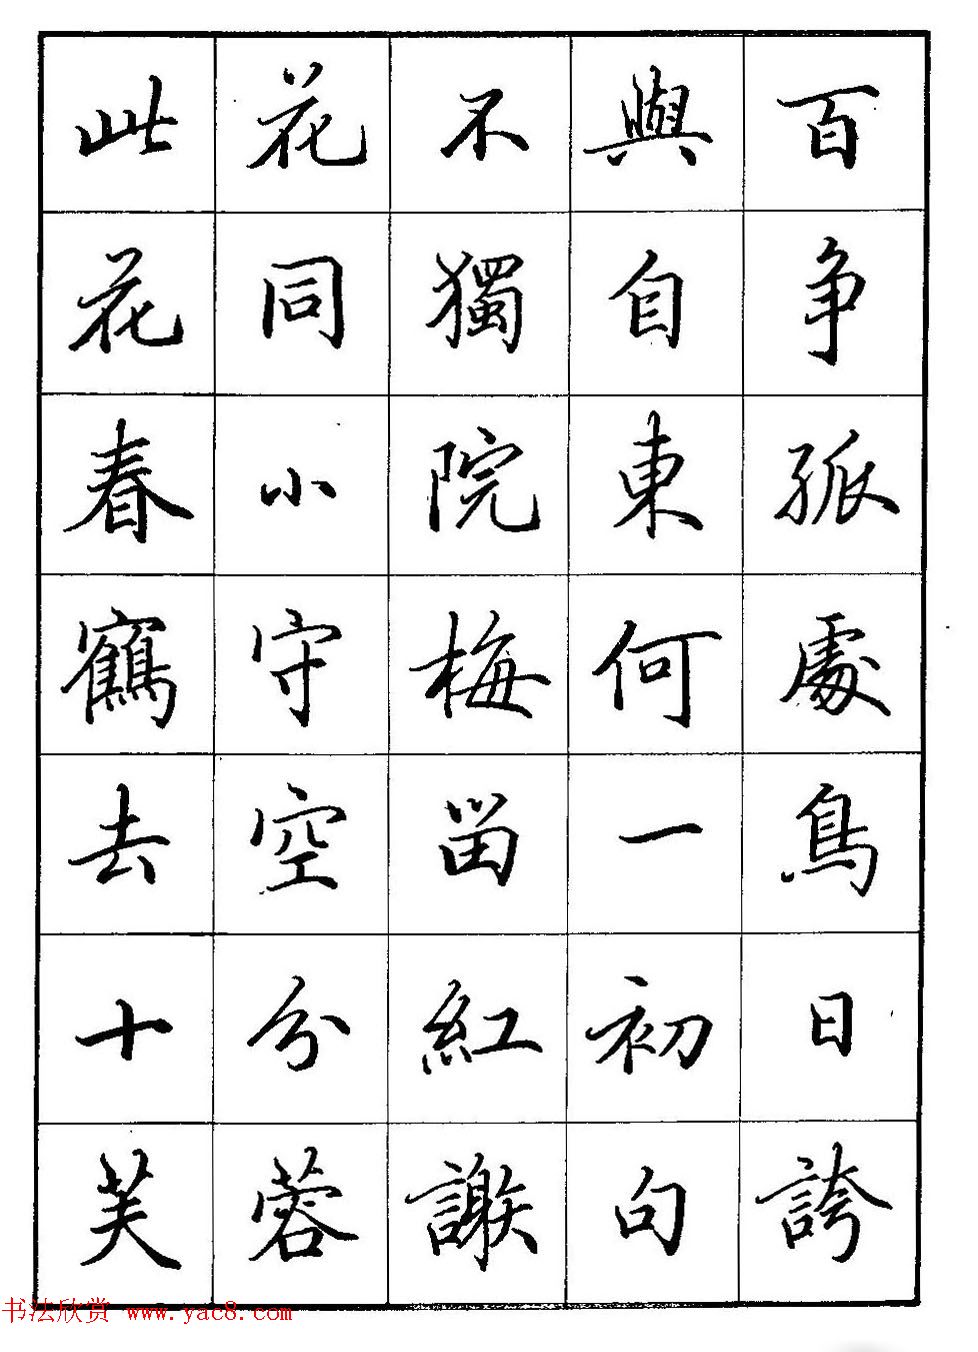 此花不與百
花同獨自争
春小院東孤
鶴守梅何處
去空留一鳥
十分紅初日
芙蓉謝句誇
书法欣赏 www.yac8.com